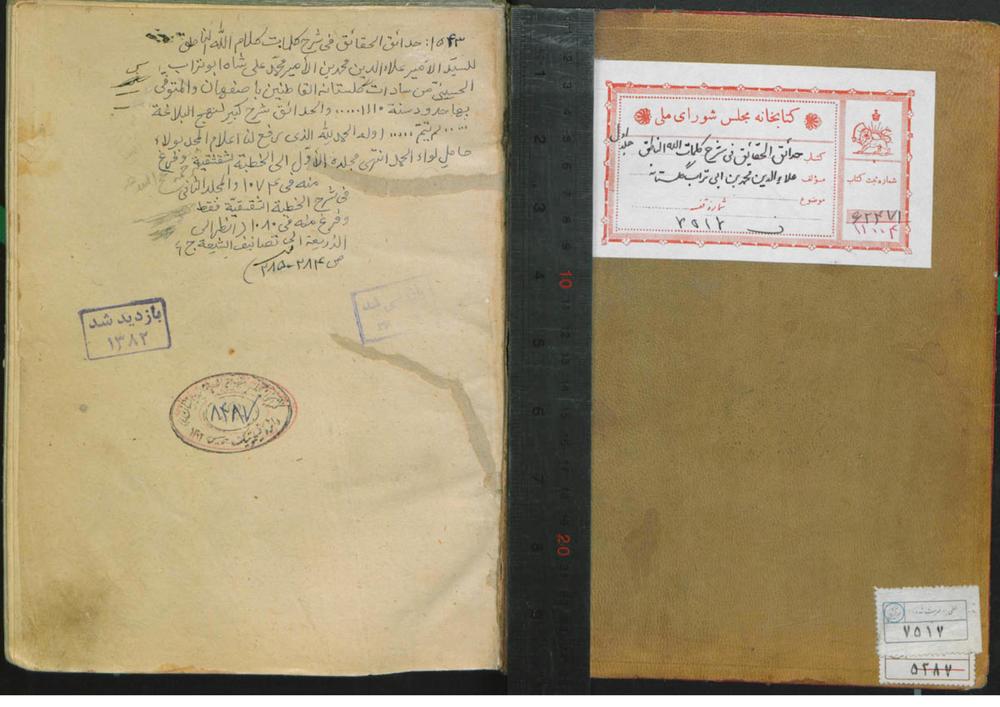 ۱۵۴۳: حدائق الحقائق فی شرح کلمات کلام الله الناطق
للسید الأمیر علاء الدین محمد بن الأمیر محمد علی شاه ابوتراب
الحسینی من سادات گلستانه القاطنین باصفهان والمتوفی
بها حدود سنة ۱۱۱۰.....والحدائق شرح کبیر لنهج البلاغة
....لم یتم.....اوله الحمد لله الذی رفع لنا اعلام المجد بولاء
حامل لواء الحمد انتهی مجلده الأول الی الخطبة الشقشقیة وفرغ
منه فی ۱۰۷۴ والمجلد الثانی
فی شرح الخطبة الشقشقیة فقط
وفرغ منه فی ۱۰۸۰ (انظر الی
الذریعة الی تصانیف الشیعة ج ۶
ص ۲۸۴-۲۸۵)
بازدید شد
۱۳۸۲
۸۴۸۷
کتابخانه مجلس شورای ملی
کتاب حدائق الحقائق فی شرح کلمات الله الناطق
جلد اول
مؤلف علاء الدین محمد بن ابی تراب گلستانه
موضوع
شماره قفسه
۳۹۱۲
شماره ثبت کتاب
۶۲۴۷۱
۱۱۰۰۴
10
20
۷۵۱۷
۵۲۸۷